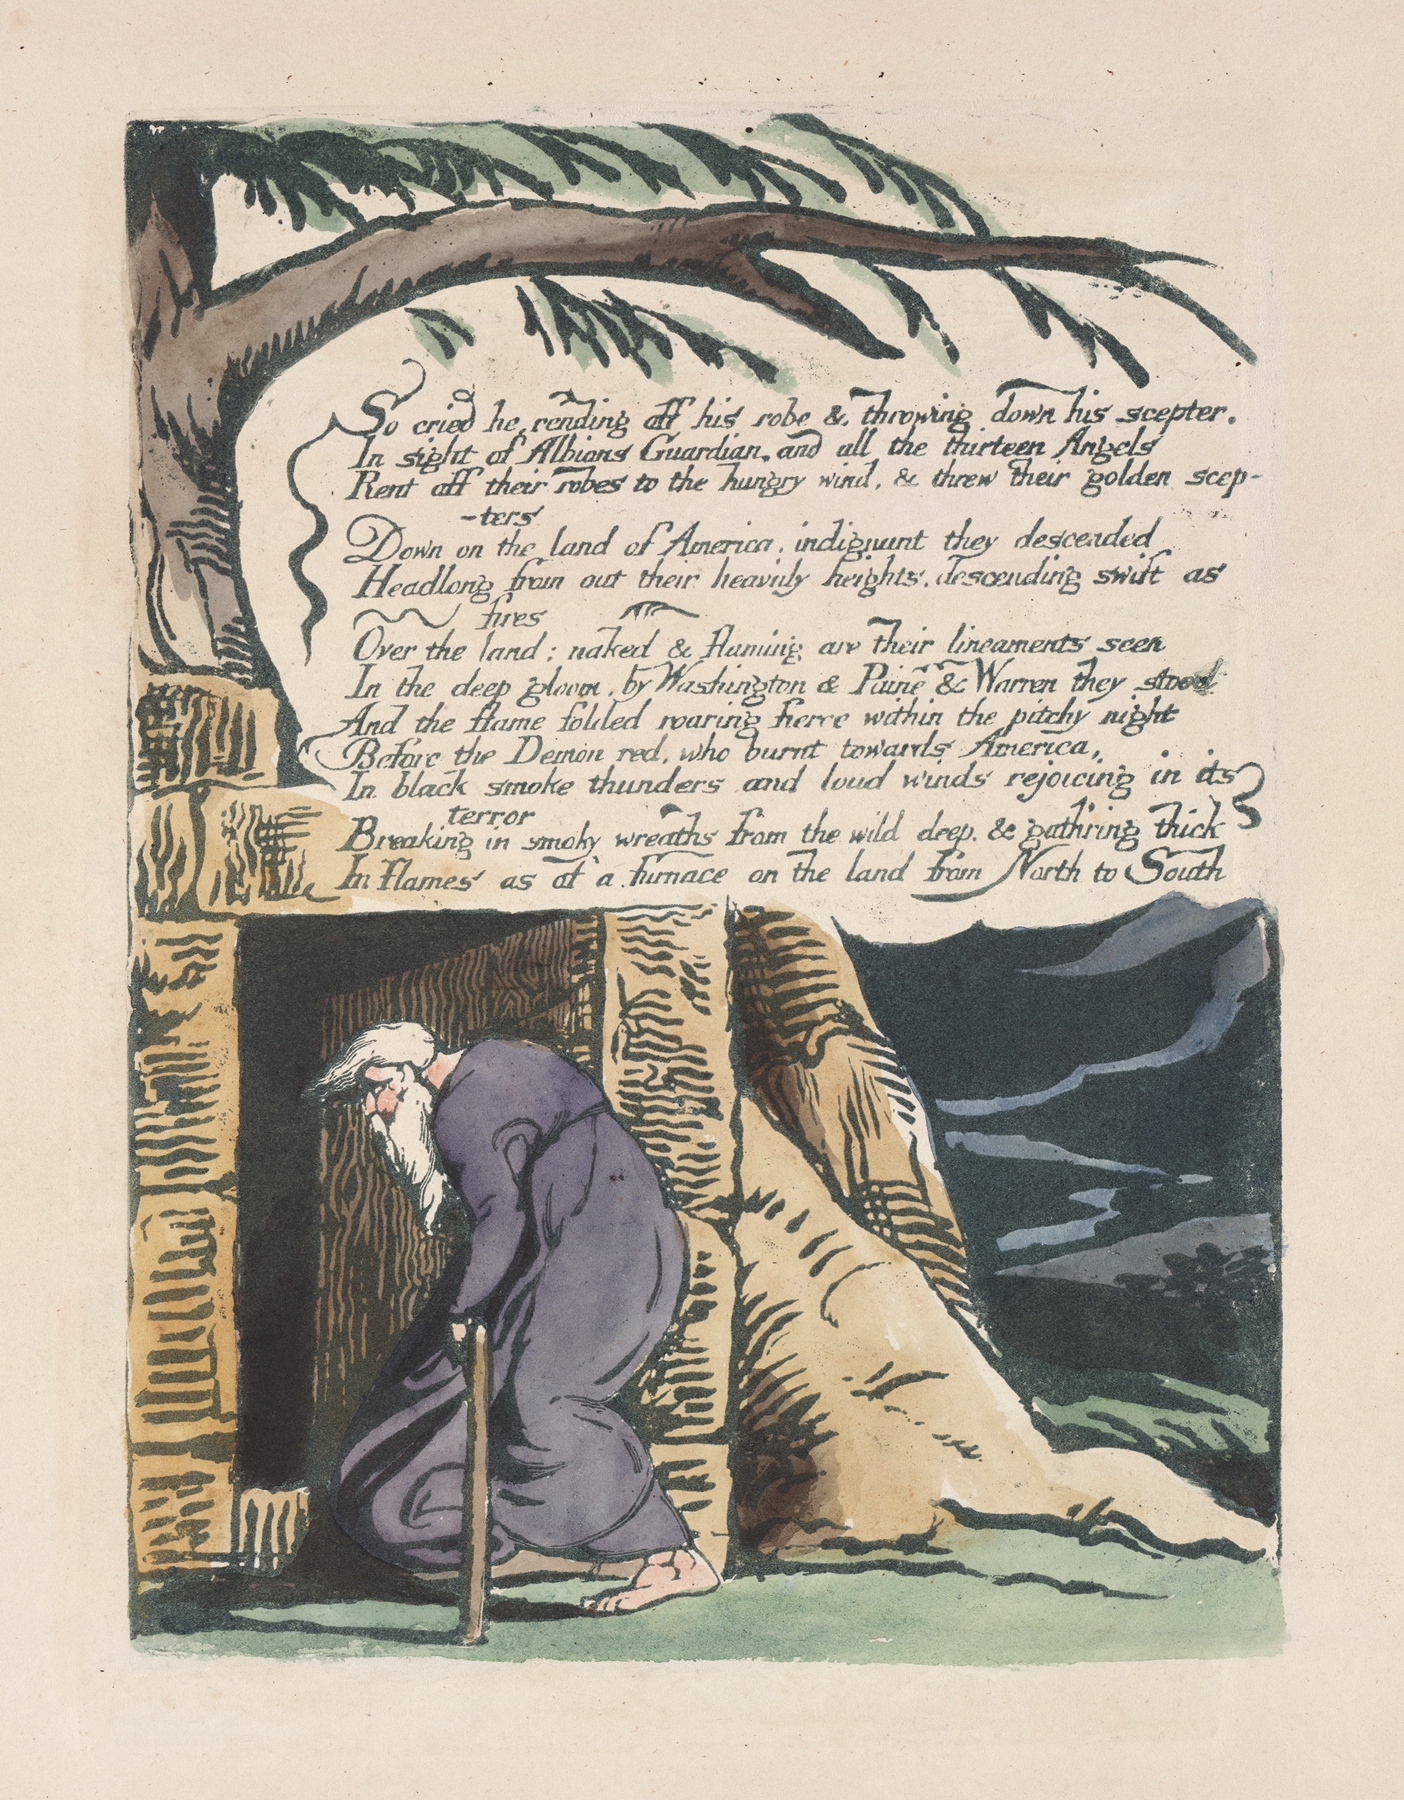 So cried he, rending off his robe & throwing down his scepter.
In sight of Albions Guardian, and all the thirteen Angels
Rent off their robes to the hungry wind, & threw their golden scep-
-ters
Down on the land of America. indignant they descended
Headlong from out their heav'nly heights, descending swift as
fires
Over the land; naked & flaming are their lineaments seen
In the deep gloom, by Washington & Paine & Warren they stood
And the flame folded roaring fierce within the pitchy night
Before the Demon red, who burnt towards America,
In black smoke thunders and loud winds rejoicing in its
terror
Breaking in smoky wreaths from the wild deep, & gath'ring thick
In flames as of a furnace on the land from North to South